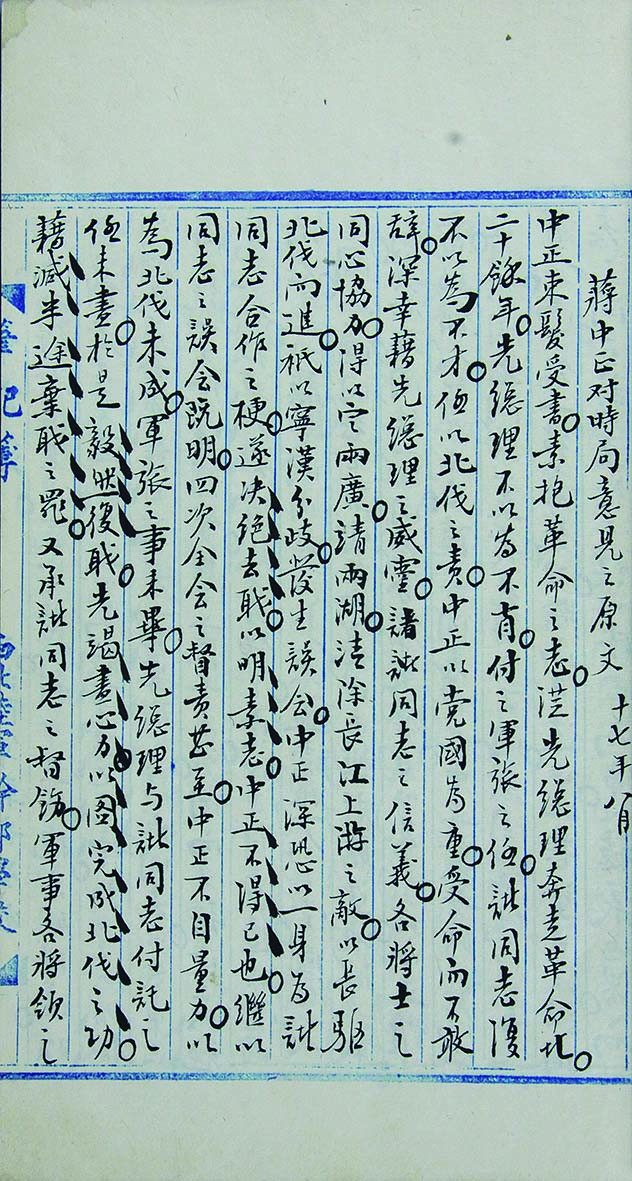 蔣中正对時局意見之原文 十七年八月
中正束髮受書。素抱革命之志。從先總理奔走革命
二十餘年。先總理不以為不肖。付之軍旅之任。諸同志復
不以為不才。任以北伐之責。中正以党國為重。受命而不敢
辞。深幸藉先總理之威靈。諸同志之信義。各將士之
同心協力。得以定兩廣。靖兩湖。清除長江上游之敵。以長驅
北伐而進。祇以寧漢分歧。發生誤会。中正深恐以一身為諸
同志合作之梗。遂决绝去职。以明素志。中正不得已也。繼以
同志之誤会既明。四次全会之督责甚至。中正不自量力。以
為北伐未成。軍旅之事未畢。先總理与諸同志付託之
任未盡。於是毅然復职。先竭盡心力。以圖完成北伐之功。
藉減半途棄职之罪。又承諸同志之督飭。軍事各將領之
筆記簿